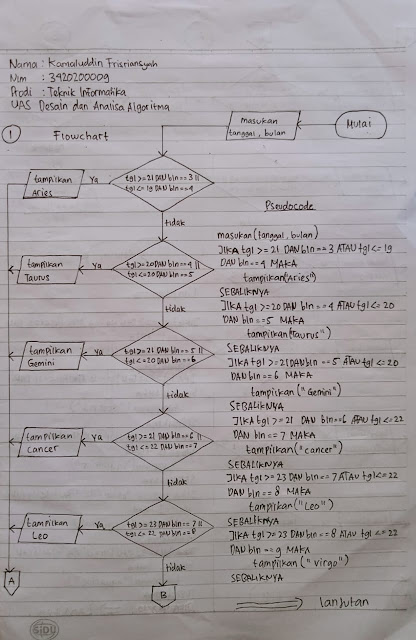 Nama : Kamaluddin Frisriansyah
Nim : 3420200009
Prodi : Teknik Informatika
UAS Desain dan Analisa Algoritma
1 Flowchart
Mulai
masukan
tanggal, bulan
tgl >= 21 DAN bln == 3 ||
tgl <= 19 DAN bln == 4
Ya
tampilkan
Aries
tidak
tgl >= 20 DAN bln == 4 ||
tgl <= 20 DAN bln == 5
Ya
tampilkan
Taurus
tidak
tgl >= 21 DAN bln == 5 ||
tgl <= 20 DAN bln == 6
Ya
tampilkan
Gemini
tidak
tgl >= 21 DAN bln == 6 ||
tgl <= 22 DAN bln == 7
Ya
tampilkan
Cancer
tidak
tgl >= 23 DAN bln == 7 ||
tgl <= 22 DAN bln == 8
Ya
tampilkan
Leo
tidak
A
B
Pseudocode
masukan (tanggal, bulan)
JIKA tgl >= 21 DAN bln == 3 ATAU tgl <= 19
DAN bln == 4 MAKA
tampilkan ("Aries")
SEBALIKNYA
JIKA tgl >= 20 DAN bln == 4 ATAU tgl <= 20
DAN bln == 5 MAKA
tampilkan ("Taurus")
SEBALIKNYA
JIKA tgl >= 21 DAN bln == 5 ATAU tgl <= 20
DAN bln == 6 MAKA
tampilkan ("Gemini")
SEBALIKNYA
JIKA tgl >= 21 DAN bln == 6 ATAU tgl <= 22
DAN bln == 7 MAKA
tampilkan ("cancer")
SEBALIKNYA
JIKA tgl >= 23 DAN bln == 7 ATAU tgl <= 22
DAN bln == 8 MAKA
tampilkan ("Leo")
SEBALIKNYA
JIKA tgl >= 23 DAN bln == 8 ATAU tgl <= 22
DAN bln == 9 MAKA
tampilkan ("virgo")
SEBALIKNYA
lanjutan
SiDU